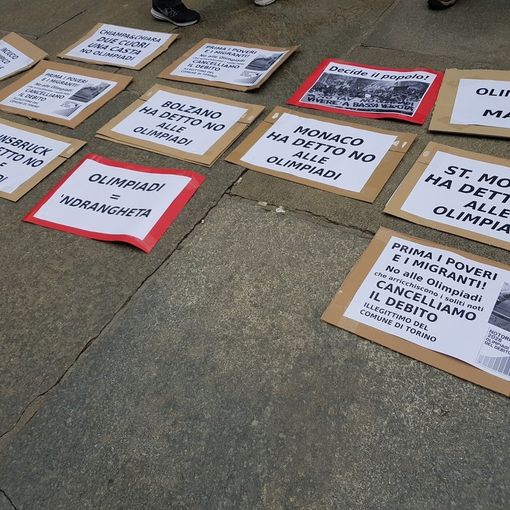 CHIAMPA&CHIARA
DUE CUORI
UNA CASTA
NO OLIMPIADI
PRIMA I POVERI
E I MIGRANTI!
No alle Olimpiadi
CANCELLIAMO
IL DEBITO
Decide il popolo!
VIVERE A BASSA VELOCITÀ
PRIMA I POVERI
E I MIGRANTI!
No alle Olimpiadi
CANCELLIAMO
IL DEBITO
BOLZANO
HA DETTO NO
ALLE
OLIMPIADI
MONACO
HA DETTO NO
ALLE
OLIMPIADI
OLI
MA
NSBRUCK
DETTO NO
ALLE
PIADI
OLIMPIADI
=
'NDRANGHETA
ST. MO
HA DETTO
ALLE
OLIMPIA
PRIMA I POVERI
E I MIGRANTI!
No alle Olimpiadi
che arricchiscono i soliti noti
CANCELLIAMO
IL DEBITO
ILLEGITTIMO DEL
COMUNE DI TORINO